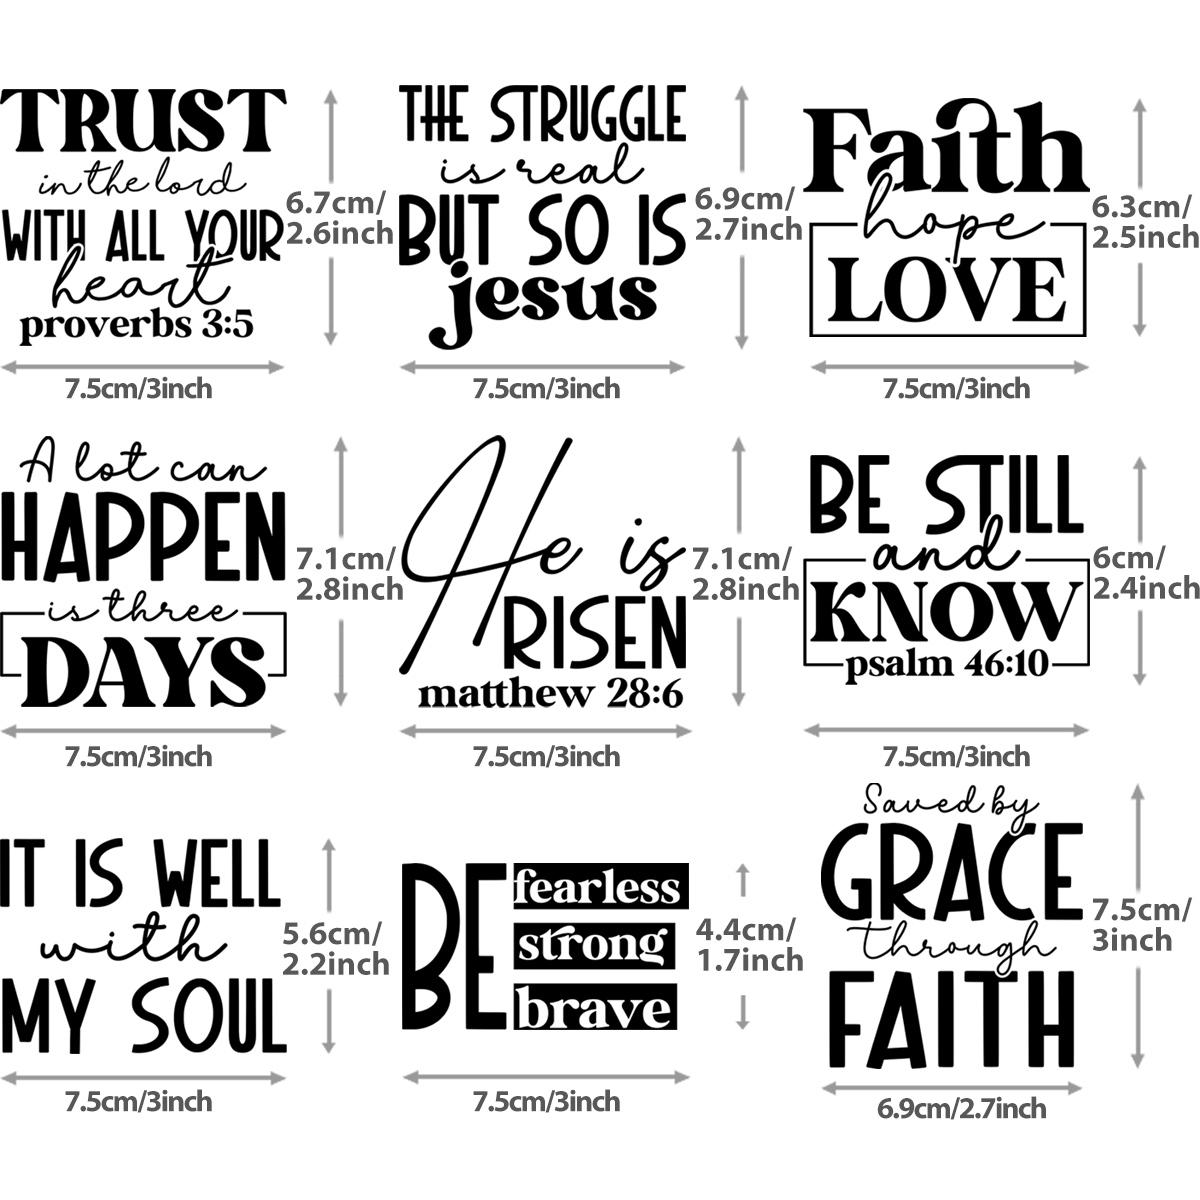 TRUST
in the lord
WITH ALL YOUR
heart
proverbs 3:5
6.7cm/
2.6inch
7.5cm/3inch
THE STRUGGLE
is real
BUT SO IS
jesus
6.9cm/
2.7inch
7.5cm/3inch
Faith
hope
LOVE
6.3cm/
2.5inch
7.5cm/3inch
A lot can
HAPPEN
is three
DAYS
7.1cm/
2.8inch
7.5cm/3inch
He is
RISEN
matthew 28:6
7.1cm/
2.8inch
7.5cm/3inch
BE STILL
and
KNOW
psalm 46:10
6cm/
2.4inch
7.5cm/3inch
IT IS WELL
with
MY SOUL
5.6cm/
2.2inch
7.5cm/3inch
BE
fearless
strong
brave
4.4cm/
1.7inch
7.5cm/3inch
Saved by
GRACE
through
FAITH
7.5cm/
3inch
6.9cm/2.7inch